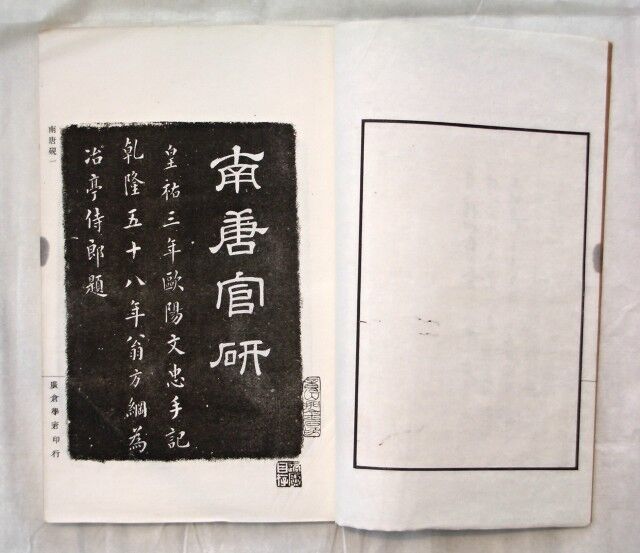 南唐官研
皇祐三年歐陽文忠手記
乾隆五十八年翁方綱為
冶亭侍郎題
南唐硯一
廣倉學宭印行